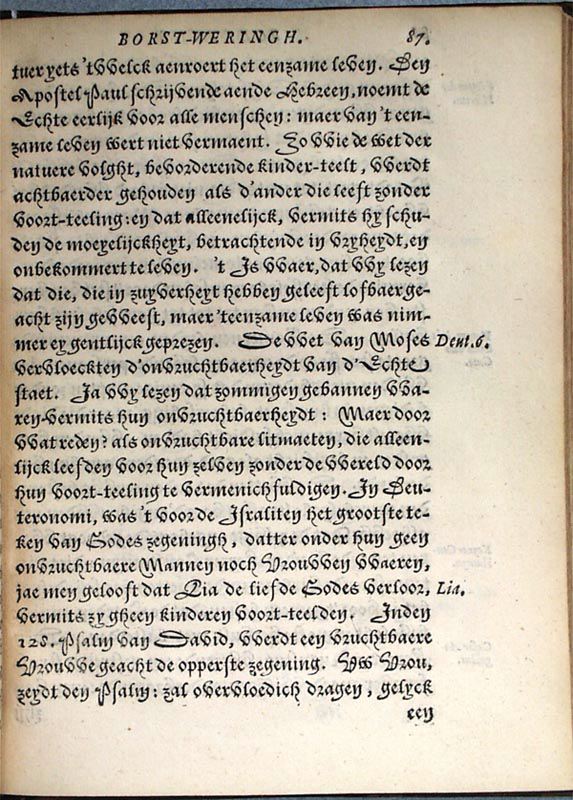 BORST-WERINGH. 87.
tuer yets 't vvelck aenroert het eenzame leven. Den
Apostel Paul schrijvende aende Hebreen, noemt de
Echte eerlijk voor alle menschen: maer van 't een-
zame leven wert niet vermaent. Zo vvie de wet der
natuere volght, bevorderende kinder-teelt, vverdt
achtbaerder gehouden als d'ander die leeft zonder
voort-teeling: en dat alleenelijck, vermits hy schu-
den de moeyelijckheyt, betrachtende in vryheydt, en
onbekommert te leven. 't Is vvaer, dat vvy lezen
dat die, die in zuyverheyt hebben geleeft lofbaer ge-
acht zijn gevveest, maer 't eenzame leven was nim-
mer eygentlijck geprezen. De vvet van Moses Deut. 6.
vervloeckten d'onvruchtbaerheydt van d'Echte
staet. Ja vvy lezen dat zommigen gebannen vva-
ren vermits hun onvruchtbaerheydt: Maer door
vvat reden? als onvruchtbare litmaeten, die alleen-
lijck leefden voor hun zelven zonder de vvereld door
hun voort-teeling te vermenichfuldigen. In Deu-
teronomi, was 't voor de Israliten het grootste te-
ken van Godes zegeningh, datter onder hun geen
onvruchtbaere Mannen noch Vrouvven vvaeren,
jae men gelooft dat Lia de liefde Godes verloor, Lia.
vermits zy gheen kinderen voort-teelden. Inden
128. Psalm van David, vverdt een vruchtbaere
Vrouvve geacht de opperste zegening. Vvv Vrou,
zeydt den Psalm: zal overvloedich dragen, gelyck
een